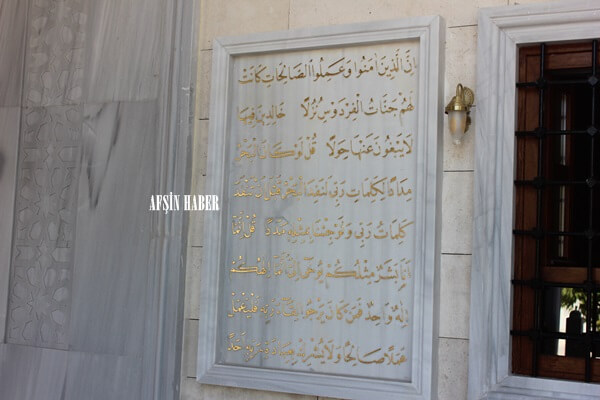 إِنَّ الَّذِينَ اٰمَنُوا وَعَمِلُوا الصَّالِحَاتِ كَانَتْ
لَهُمْ جَنَّاتُ الْفِرْدَوْسِ نُزُلًا خَالِدِينَ فِيهَا
لَا يَبْغُونَ عَنْهَا حِوَلًا قُلْ لَوْ كَانَ الْبَحْرُ
مِدَادًا لِكَلِمَاتِ رَبِّي لَنَفِدَ الْبَحْرُ قَبْلَ اَنْ تَنْفَدَ
AFŞİN HABER
كَلِمَاتُ رَبِّي وَلَوْ جِئْنَا بِمِثْلِهِ مَدَدًا قُلْ اِنَّمَا
اَنَا بَشَرٌ مِثْلُكُمْ يُوحٰى اِلَيَّ اَنَّمَا اِلٰهُكُمْ
اِلٰهٌ وَاحِدٌ فَمَنْ كَانَ يَرْجُوا لِقَاءَ رَبِّهِ فَلْيَعْمَلْ
عَمَلًا صَالِحًا وَلَا يُشْرِكْ بِعِبَادَةِ رَبِّهِ اَحَدًا